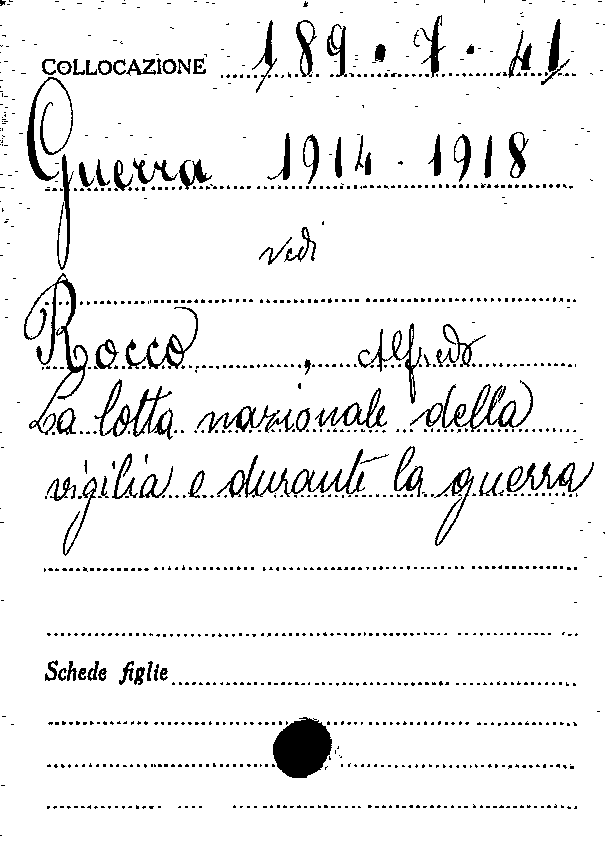 COLLOCAZIONE 189.7.41
Guerra 1914-1918
vedi
Rocco, Alfredo
La lotta nazionale della
vigilia e durante la guerra
Schede figlie